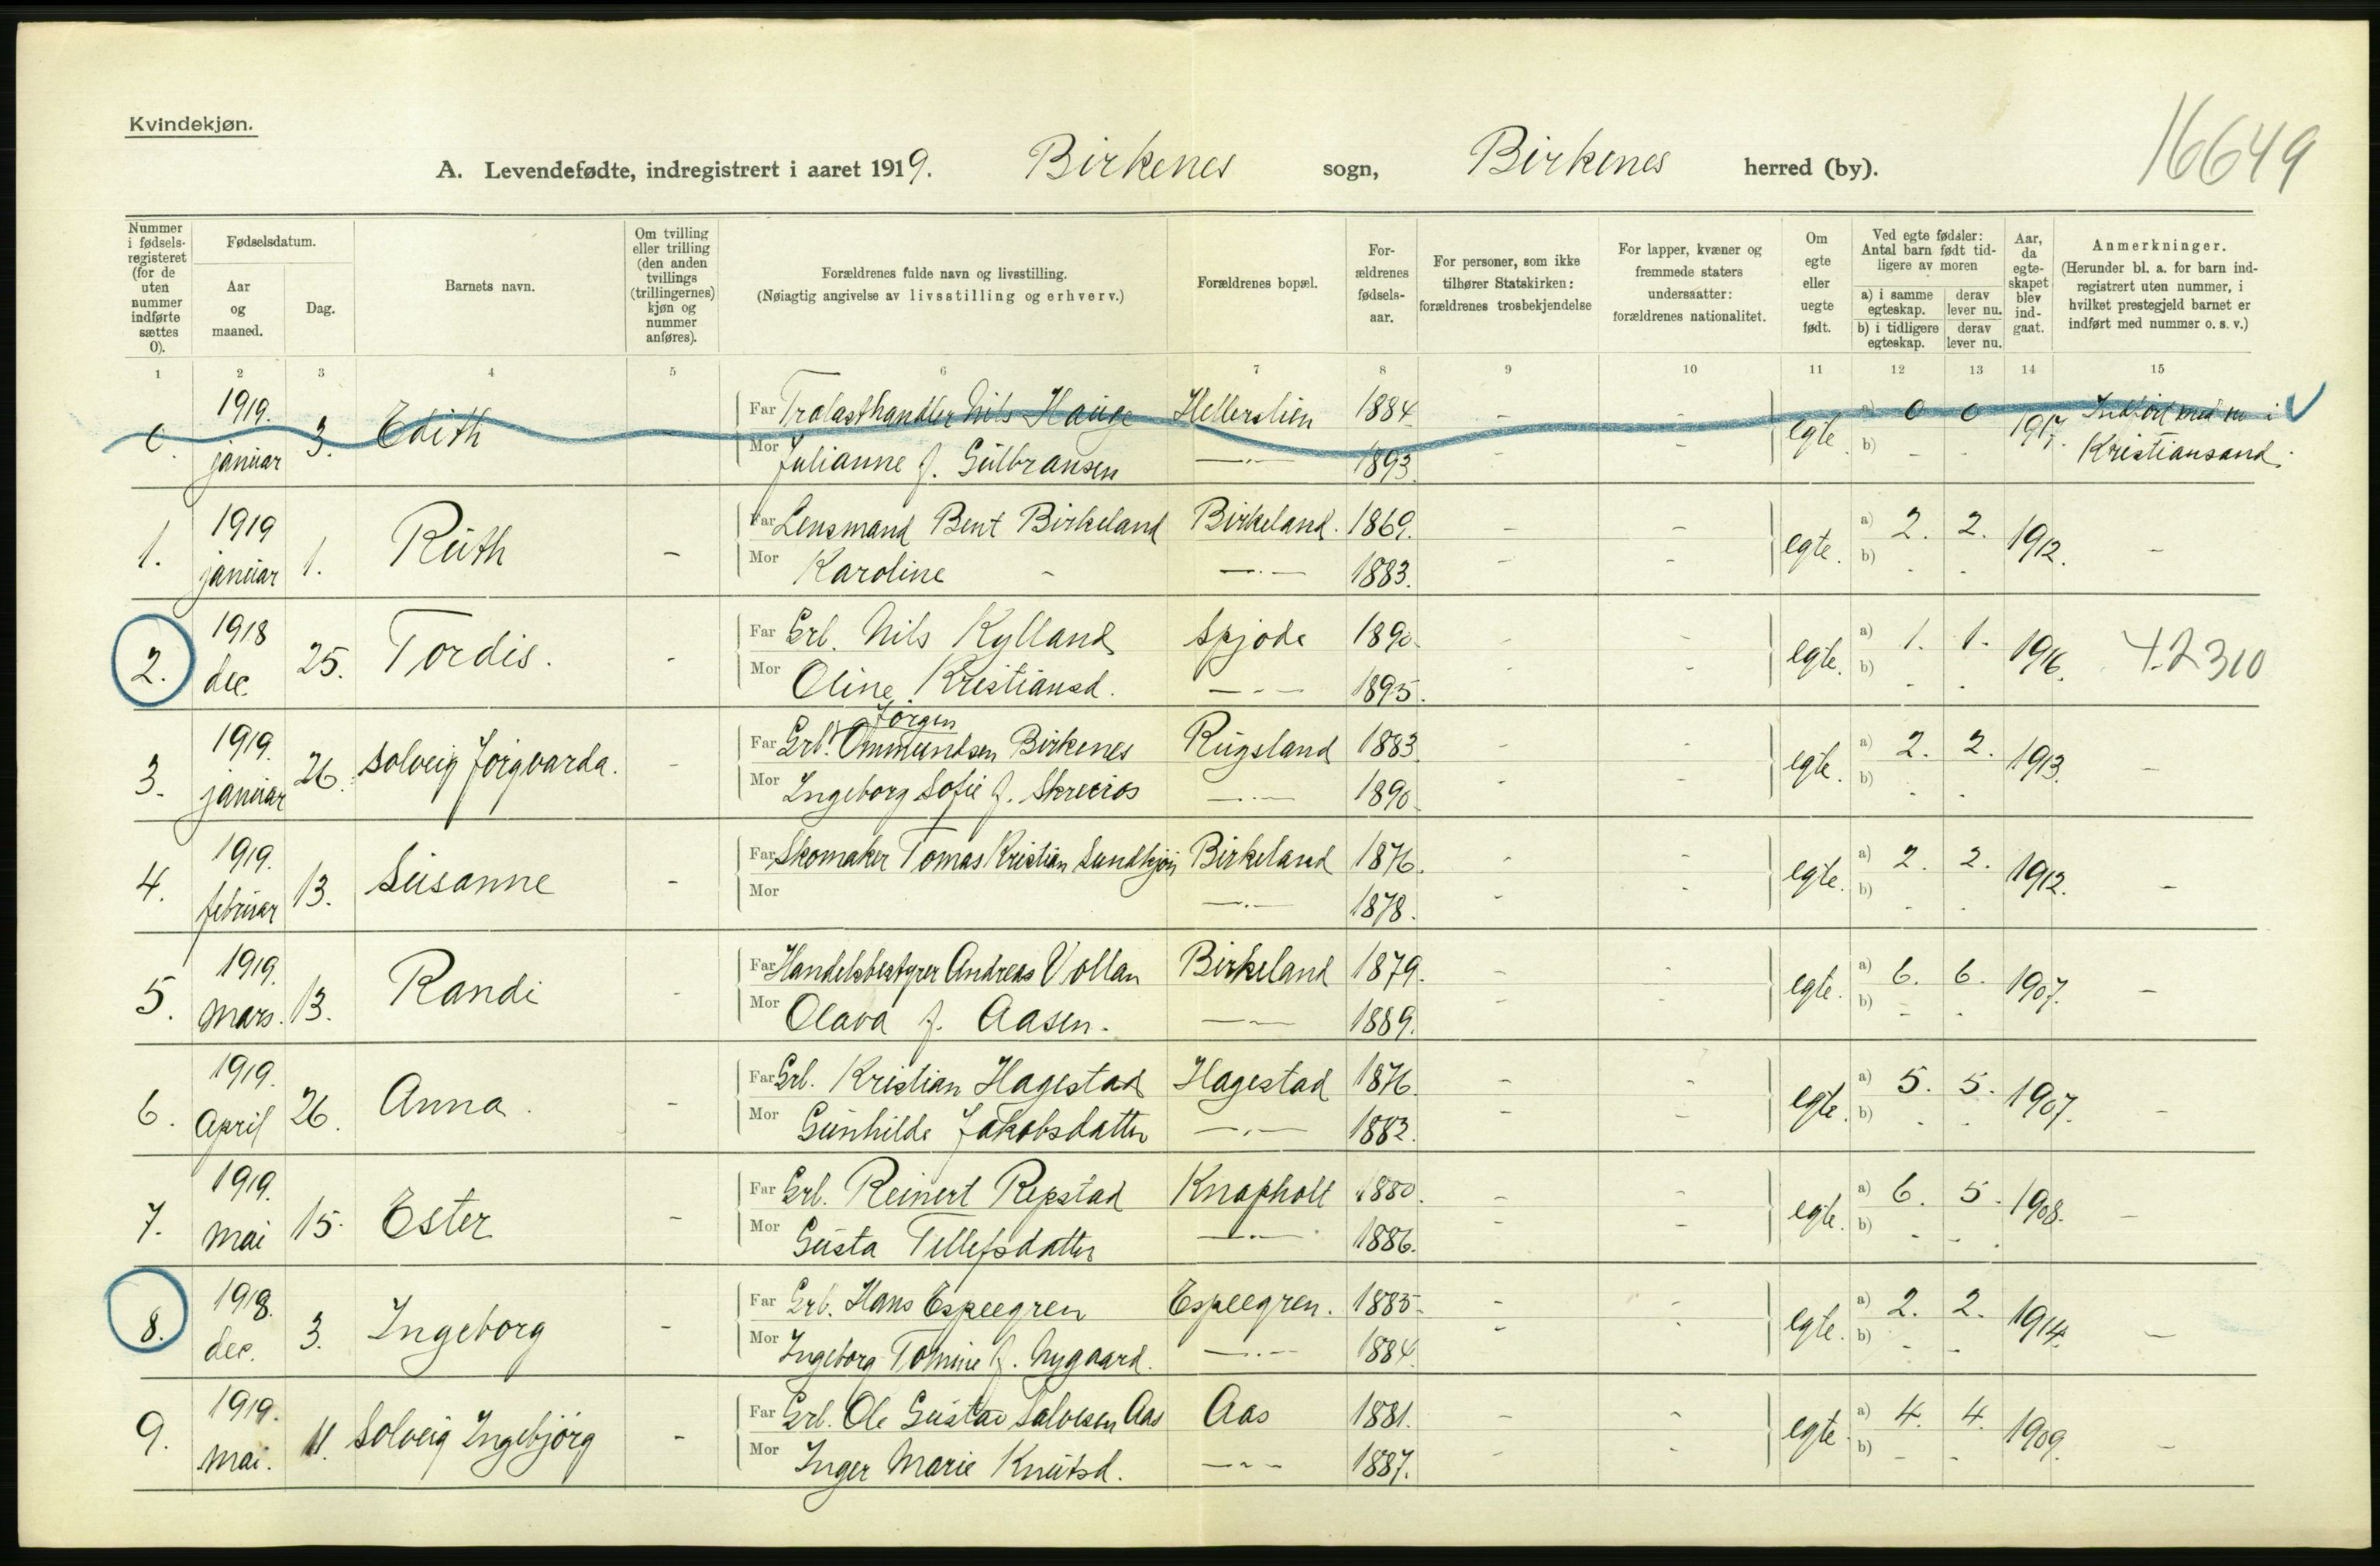 Kvindekjøn.
16649
A. Levendefødte, indregistrert i aaret 1919. Birkenes sogn, Birkenes herred (by).
Nummer i fødsels-registeret (for de uten nummer indførte sættes 0).
Fødselsdatum.
Aar og maaned.
Dag.
Barnets navn.
Om tvilling eller trilling (den anden tvillings (trillingernes) kjøn og nummer anføres).
Forældrenes fulde navn og livsstilling.
(Nøiagtig angivelse av livsstilling og erhverv.)
Forældrenes bopæl.
For-ældrenes fødsels-aar.
For personer, som ikke tilhører Statskirken: forældrenes trosbekjendelse
For lapper, kvæner og fremmede staters undersaatter: forældrenes nationalitet.
Om egte eller uegte født.
Ved egte fødsler: Antal barn født tid-ligere av moren
a) i samme egteskap. derav lever nu.
b) i tidligere egteskap. derav lever nu.
Aar, da egte-skapet blev ind-gaat.
Anmerkninger.
(Herunder bl. a. for barn ind-registrert uten nummer, i hvilket prestegjeld barnet er indført med nummer o. s. v.)
1 2 3 4 5 6 7 8 9 10 11 12 13 14 15
0. 1919. januar 3. Edith - Far Trælasthandler Nils Hauge Hellerslien 1884 - - egte a) 0 0 1917. Indført med nr i
Mor Julianne f. Gulbransen —.— 1893. - - b) - - Kristiansand.
1. 1919 januar 1. Ruth - Far Lensmand Bent Birkeland Birkeland. 1869. - - egte. a) 2. 2. 1912. -
Mor Karoline - —.— 1883. - - b) - -
2. 1918 dec. 25. Tordis. - Far Grb. Nils Kylland Spjode 1890. - - egte. a) 1. 1. 1916. 42310
Mor Oline Kristiansd. - - - 1895. - - b) - -
3. 1919. januar 26. Solveig Jørgvarda. - Far Grb. Jörgen Ommundsen Birkenes Rugsland 1883. - - egte. a) 2. 2. 1913. -
Mor Ingeborg Sofie f. —.— 1890. - - b) - -
4. 1919. februar 13. Susanne - Far Skomaker Tomas Kristian Birkeland 1876. - - egte. a) 2. 2. 1912. -
Mor —.— 1878. - - b) - -
5. 1919. Mars. 13. Randi - Far Handelsbestyrer Andreas Vollan Birkeland 1879. - - egte. a) 6. 6. 1907. -
Mor Olava f. Aasen. —.— 1889. - - b) - -
6. 1919. April 26. Anna. - Far Grb. Kristian Hagestad Hagestad 1876. - - egte. a) 5. 5. 1907. -
Mor Gunhilde Jakobsdatter —.— 1882. - - b) - -
7. 1919. Mai 15. Ester - Far Grb. Reinert Repstad Knapholt 1880. - - egte. a) 6. 5. 1908. -
Mor Gusta Tellefsdatter —.— 1886. - - b) - -
8. 1918. dec. 3. Ingeborg - Far Grb. Hans Espeegren Espeegren. 1885. - - egte. a) 2. 2. 1914. -
Mor Ingeborg Tomine f. Nygaard. —.— 1884. - - b) - -
9. 1919. Mai. 11. Solveig Ingebjörg - Far Grb. Ole Gustav Salvesen Aas Aas 1881. - - egte. a) 4. 4. 1909. -
Mor Inger Marie Knutsd. - - - 1887. - - b) - -